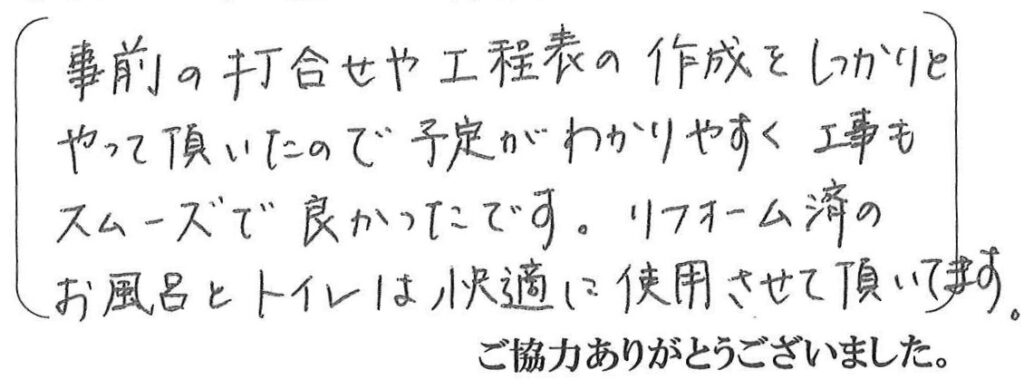 事前の打合せや工程表の作成をしっかりと
やって頂いたので予定がわかりやすく工事も
スムーズで良かったです。リフォーム済の
お風呂とトイレは快適に使用させて頂いてます。
ご協力ありがとうございました。